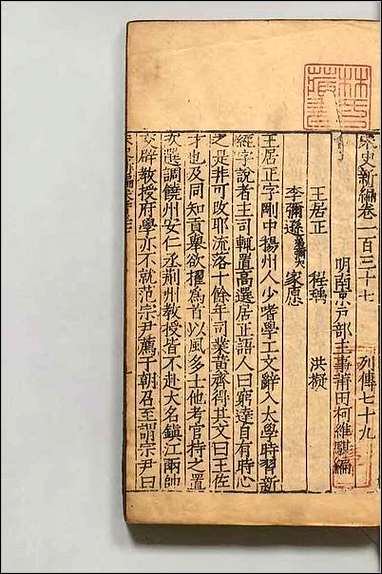 宋史新編卷一百三十七 列傳七十九
明南京戶部主事莆田柯維騏編
王居正 程瑀 洪擬
李彌遜弟彌大 家愿
王居正字剛中揚州人少嗜學工文辭入太學時習新
經字說者主司輒置高選居正語人曰窮達自有時心
之是非可改耶流落十餘年司業黃齊得其文曰王佐
才也及同知貢舉欲擢爲首以風多士他考官持之置
次選調饒州安仁丞荆州教授皆不赴大名鎮江兩帥
交辟教授府學亦不就范宗尹薦于朝召至謂宗尹曰